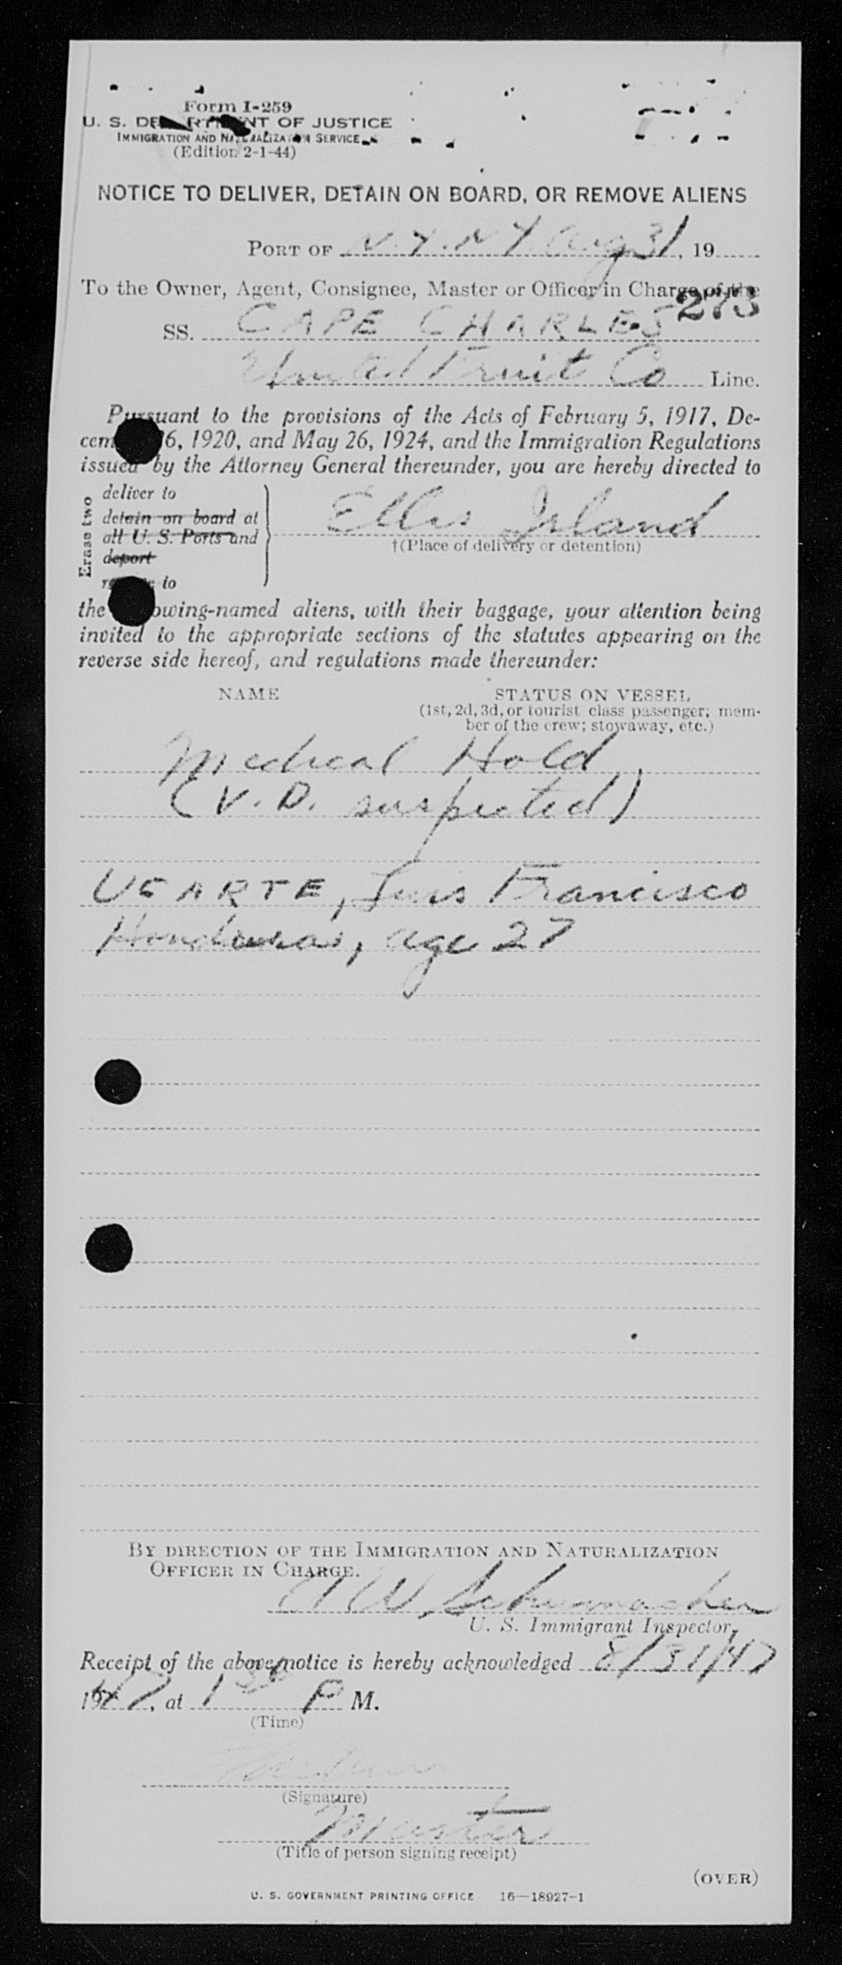 Form I-259
U. S. DEPARTMENT OF JUSTICE
IMMIGRATION AND NATURALIZATION SERVICE
(Edition 2-1-44)
NOTICE TO DELIVER, DETAIN ON BOARD, OR REMOVE ALIENS
PORT OF N.Y. N Y. Aug 31, 19
To the Owner, Agent, Consignee, Master or Officer in Charge of the
273
SS. CAPE CHARLES
United Fruit Co Line.
Pursuant to the provisions of the Acts of February 5, 1917, De-
cem 6, 1920, and May 26, 1924, and the Immigration Regulations
issued by the Attorney General thereunder, you are hereby directed to
Erase two
deliver to
detain on board at
all U. S. Ports and
deport
to
Ellis Island
†(Place of delivery or detention)
the owing-named aliens, with their baggage, your attention being
invited to the appropriate sections of the statutes appearing on the
reverse side hereof, and regulations made thereunder:
NAME STATUS ON VESSEL
(1st, 2d, 3d, or tourist class passenger; mem-
ber of the crew; stowaway, etc.)
Medical Hold
(V. D. suspected)
UGARTE, Luis Francisco
Honduras, age 27
BY DIRECTION OF THE IMMIGRATION AND NATURALIZATION
OFFICER IN CHARGE.
W Schumacher
U. S. Immigrant Inspector.
Receipt of the above notice is hereby acknowledged 8/31/47
1947, at 1 30 P M.
(Time)
(Signature)
Master
(Title of person signing receipt)
(OVER)
U. S. GOVERNMENT PRINTING OFFICE 16—18927-1